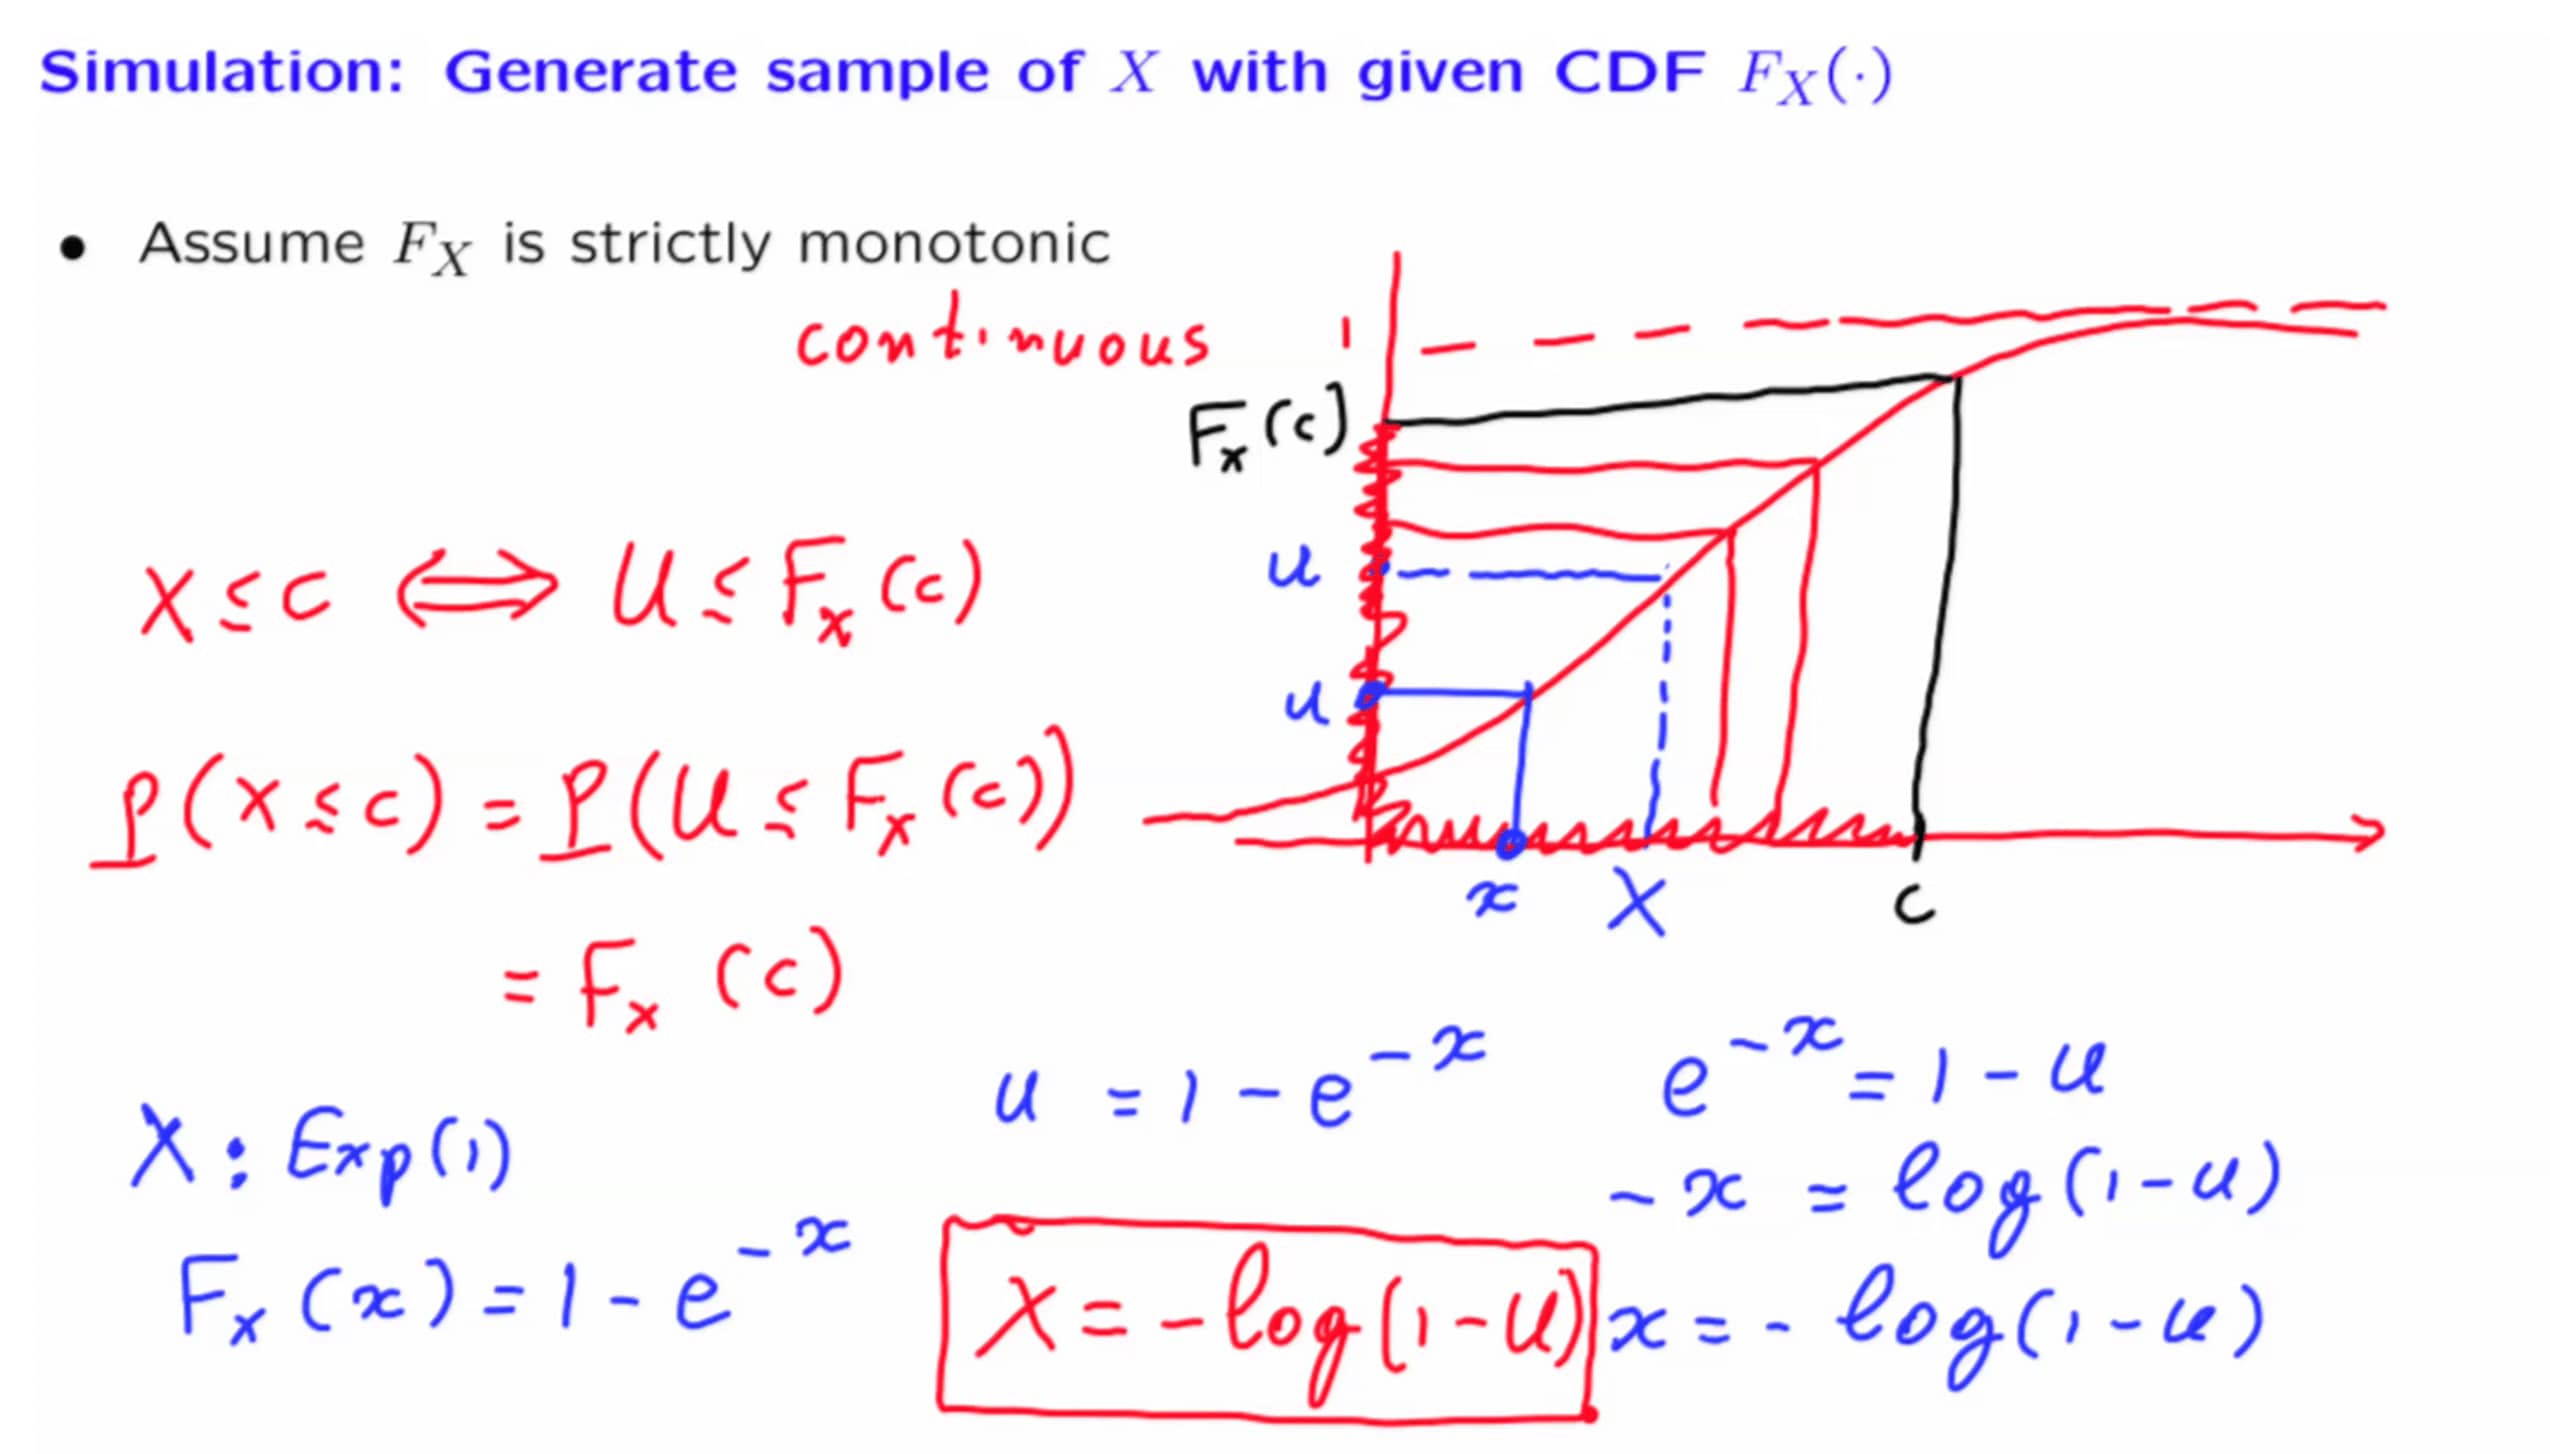 Simulation: Generate sample of X with given CDF F_X(·)
• Assume F_X is strictly monotonic
continuous
1
F_x(c)
u
u
x
X
c
X ≤ c ⟺ U ≤ F_x(c)
P(X ≤ c) = P(U ≤ F_x(c))
= F_x(c)
X : Exp(1)
F_x(x) = 1 - e^{-x}
u = 1 - e^{-x}
e^{-x} = 1 - u
-x = log(1-u)
x = -log(1-u)
X = -log(1-U)